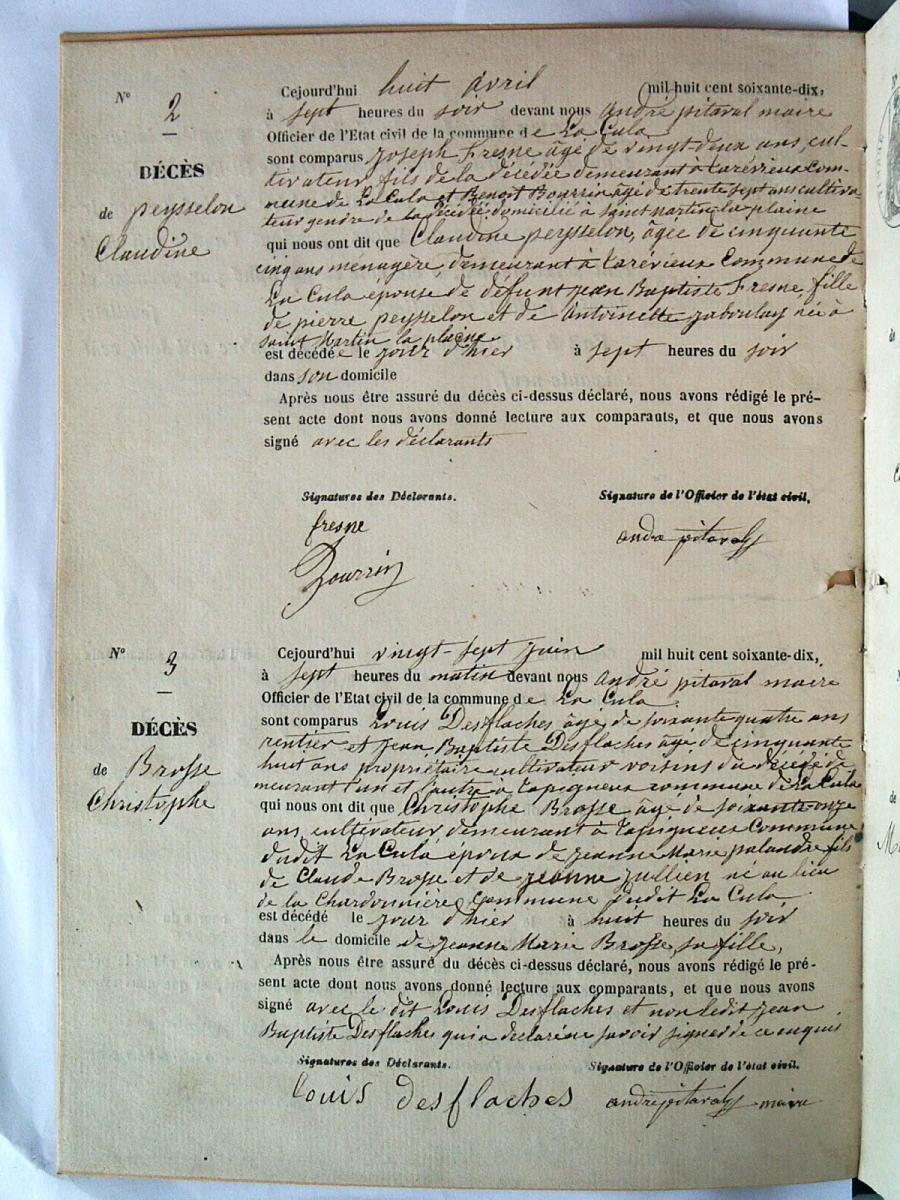 N° 2
DÉCÈS
de peysselon
Claudine
Cejourd'hui huit avril mil huit cent soixante-dix,
à sept heures du soir devant nous andré pitaval maire
Officier de l'Etat civil de la commune de La Cula
sont comparus Joseph Fresne âgé de vingt deux ans, cul-
tivateur fils de la décédée demeurant à Carévieux Com-
mune de La Cula et Benoit Bourrin âgé de trente sept ans cultiva-
teur gendre de la décédée domicilié à Saint Martin la plaine
qui nous ont dit que Claudine peysselon, âgée de cinquante
cinq ans ménagère, demeurant à Carévieux Commune de
La Cula épouse de défunt jean Baptiste Fresne, fille
de pierre peysselon et de Antoinette Jaboulay née à
Saint Martin la plaine
est décédée le jour d'hier à sept heures du soir
dans son domicile
Après nous être assuré du décès ci-dessus déclaré, nous avons rédigé le pré-
sent acte dont nous avons donné lecture aux comparants, et que nous avons
signé avec les déclarants
Signatures des Déclarants. Signature de l'Officier de l'état civil,
fresne andre pitaval
Bourrin
N° 3
DÉCÈS
de Brosse
Christophe
Cejourd'hui vingt-sept juin mil huit cent soixante-dix,
à sept heures du matin devant nous andré pitaval maire
Officier de l'Etat civil de la commune de La Cula
sont comparus Louis Desflaches âgé de soixante quatre ans
rentier et jean Baptiste Desflaches âgé de cinquante
huit ans propriétaire cultivateur voisins du décédé de
meurant l'un et l'autre à commune de La Cula
qui nous ont dit que Christophe Brosse âgé de soixante onze
ans, cultivateur demeurant à Commune
dudit La Cula époux de jeanne Marie palandre fils
de Claude Brosse et de jeanne jullien né au lieu
de la Chardonnière Commune dudit La Cula
est décédé le jour d'hier à huit heures du soir
dans le domicile de jeanne Marie Brosse, sa fille,
Après nous être assuré du décès ci-dessus déclaré, nous avons rédigé le pré-
sent acte dont nous avons donné lecture aux comparants, et que nous avons
signé avec le dit Louis Desflaches et non ledit jean
Baptiste Desflaches qui a déclaré ne savoir signer de ce enquis
Signatures des Déclarants. Signature de l'Officier de l'état civil.
Louis desflaches andre pitaval maire